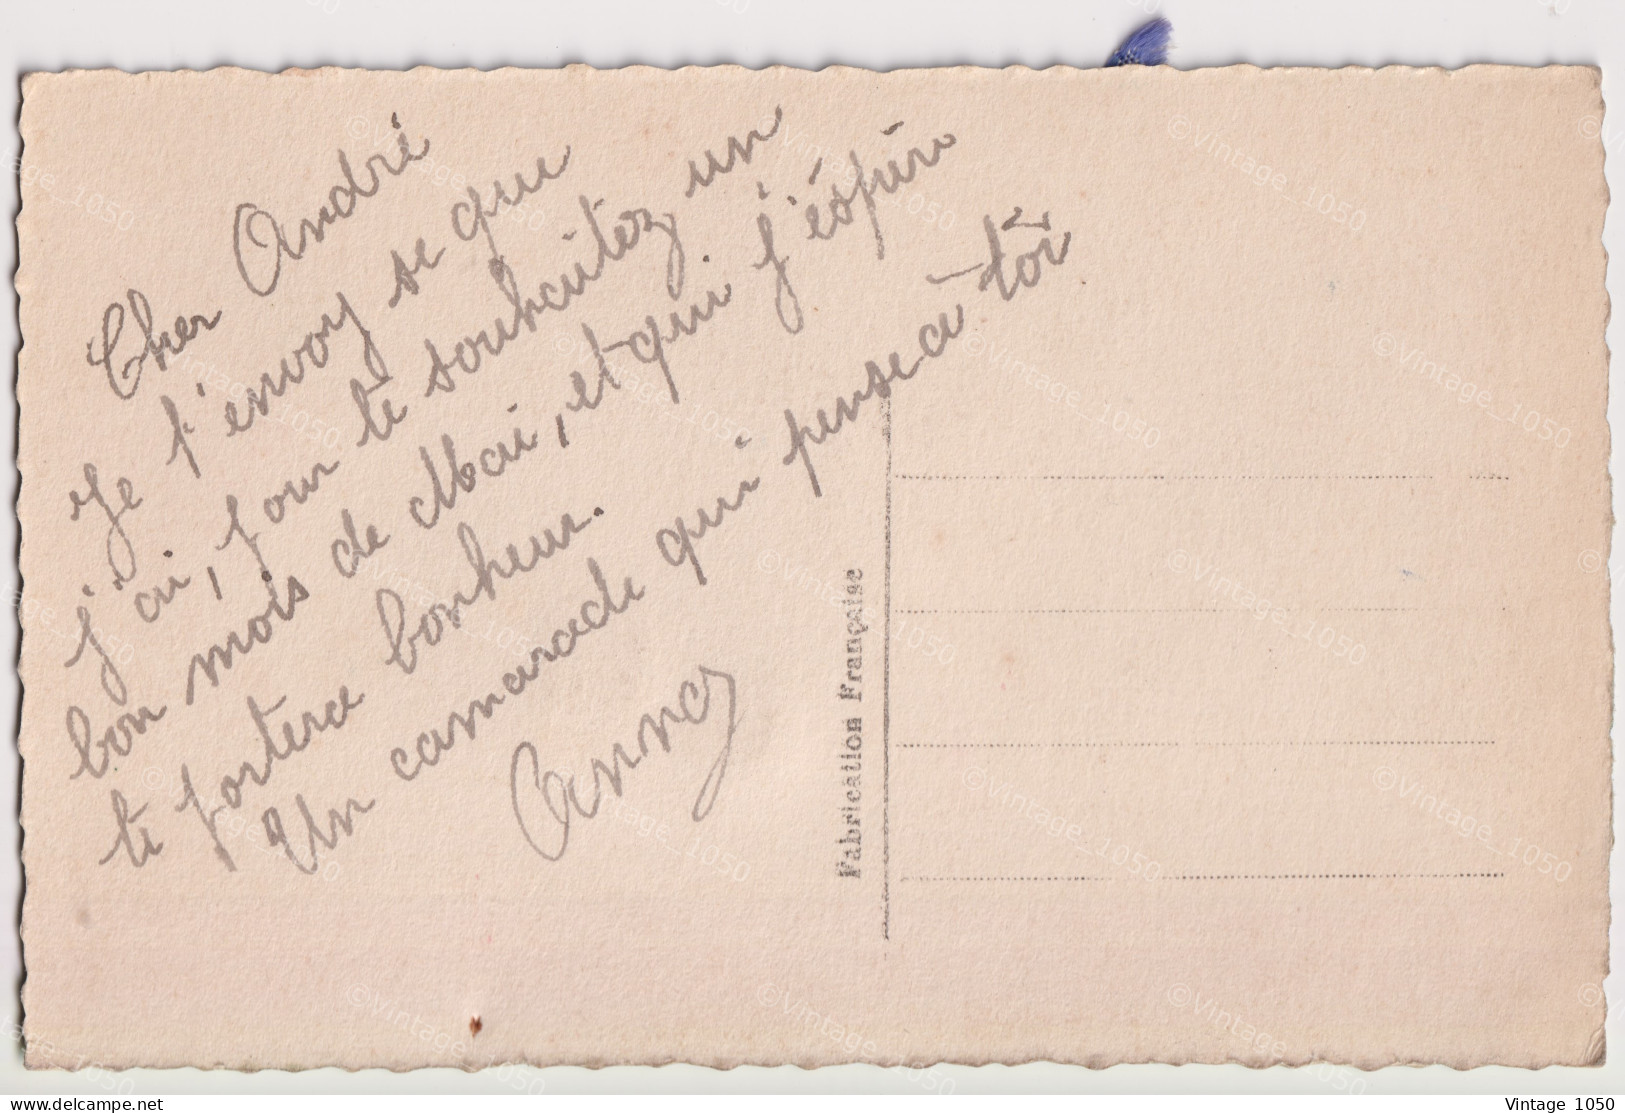 Cher André
Je t'envoy se que
j'ai, pour te souhaitez un
bon mois de Mai, et qui j'éspére
te portera bonheur.
Un camarade qui pense à toi
Fabrication Française
©Vintage_1050
delcampe.net
Vintage 1050